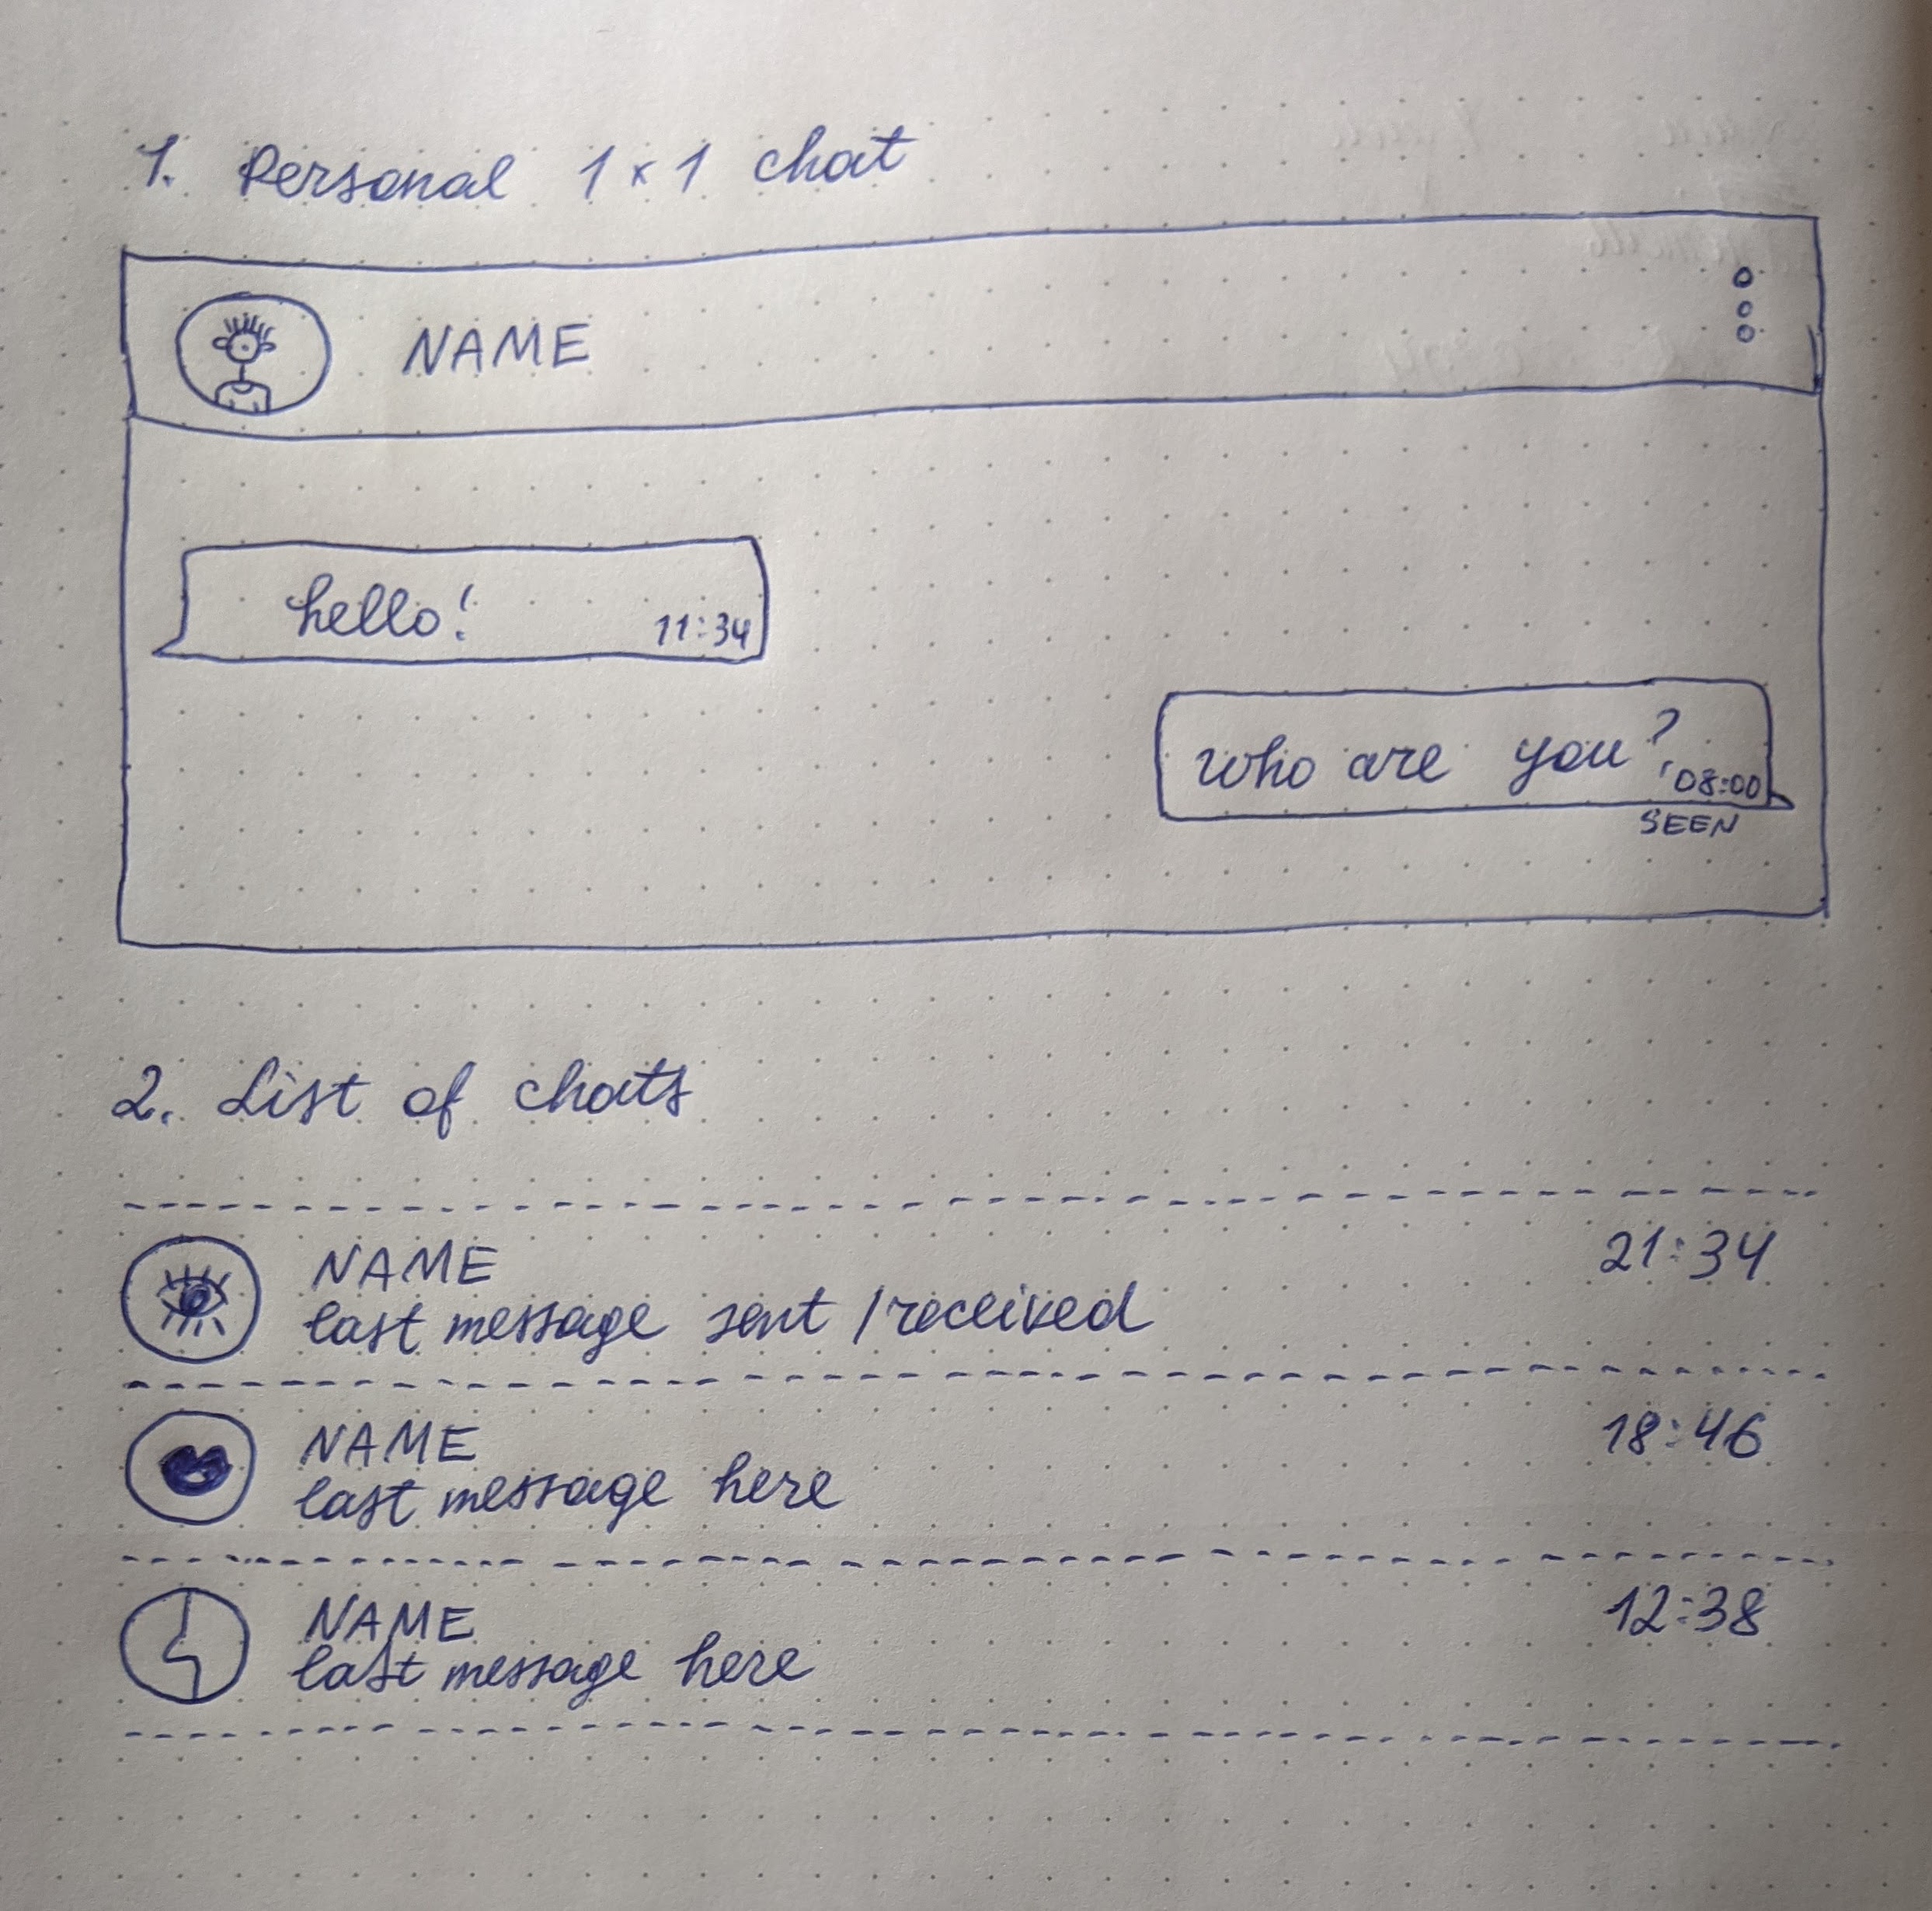 1. Personal 1×1 chat
NAME
hello! 11:34
who are you? 08:00
SEEN
2. List of chats
NAME 21:34
last message sent / received
NAME 18:46
last message here
NAME 12:38
last message here